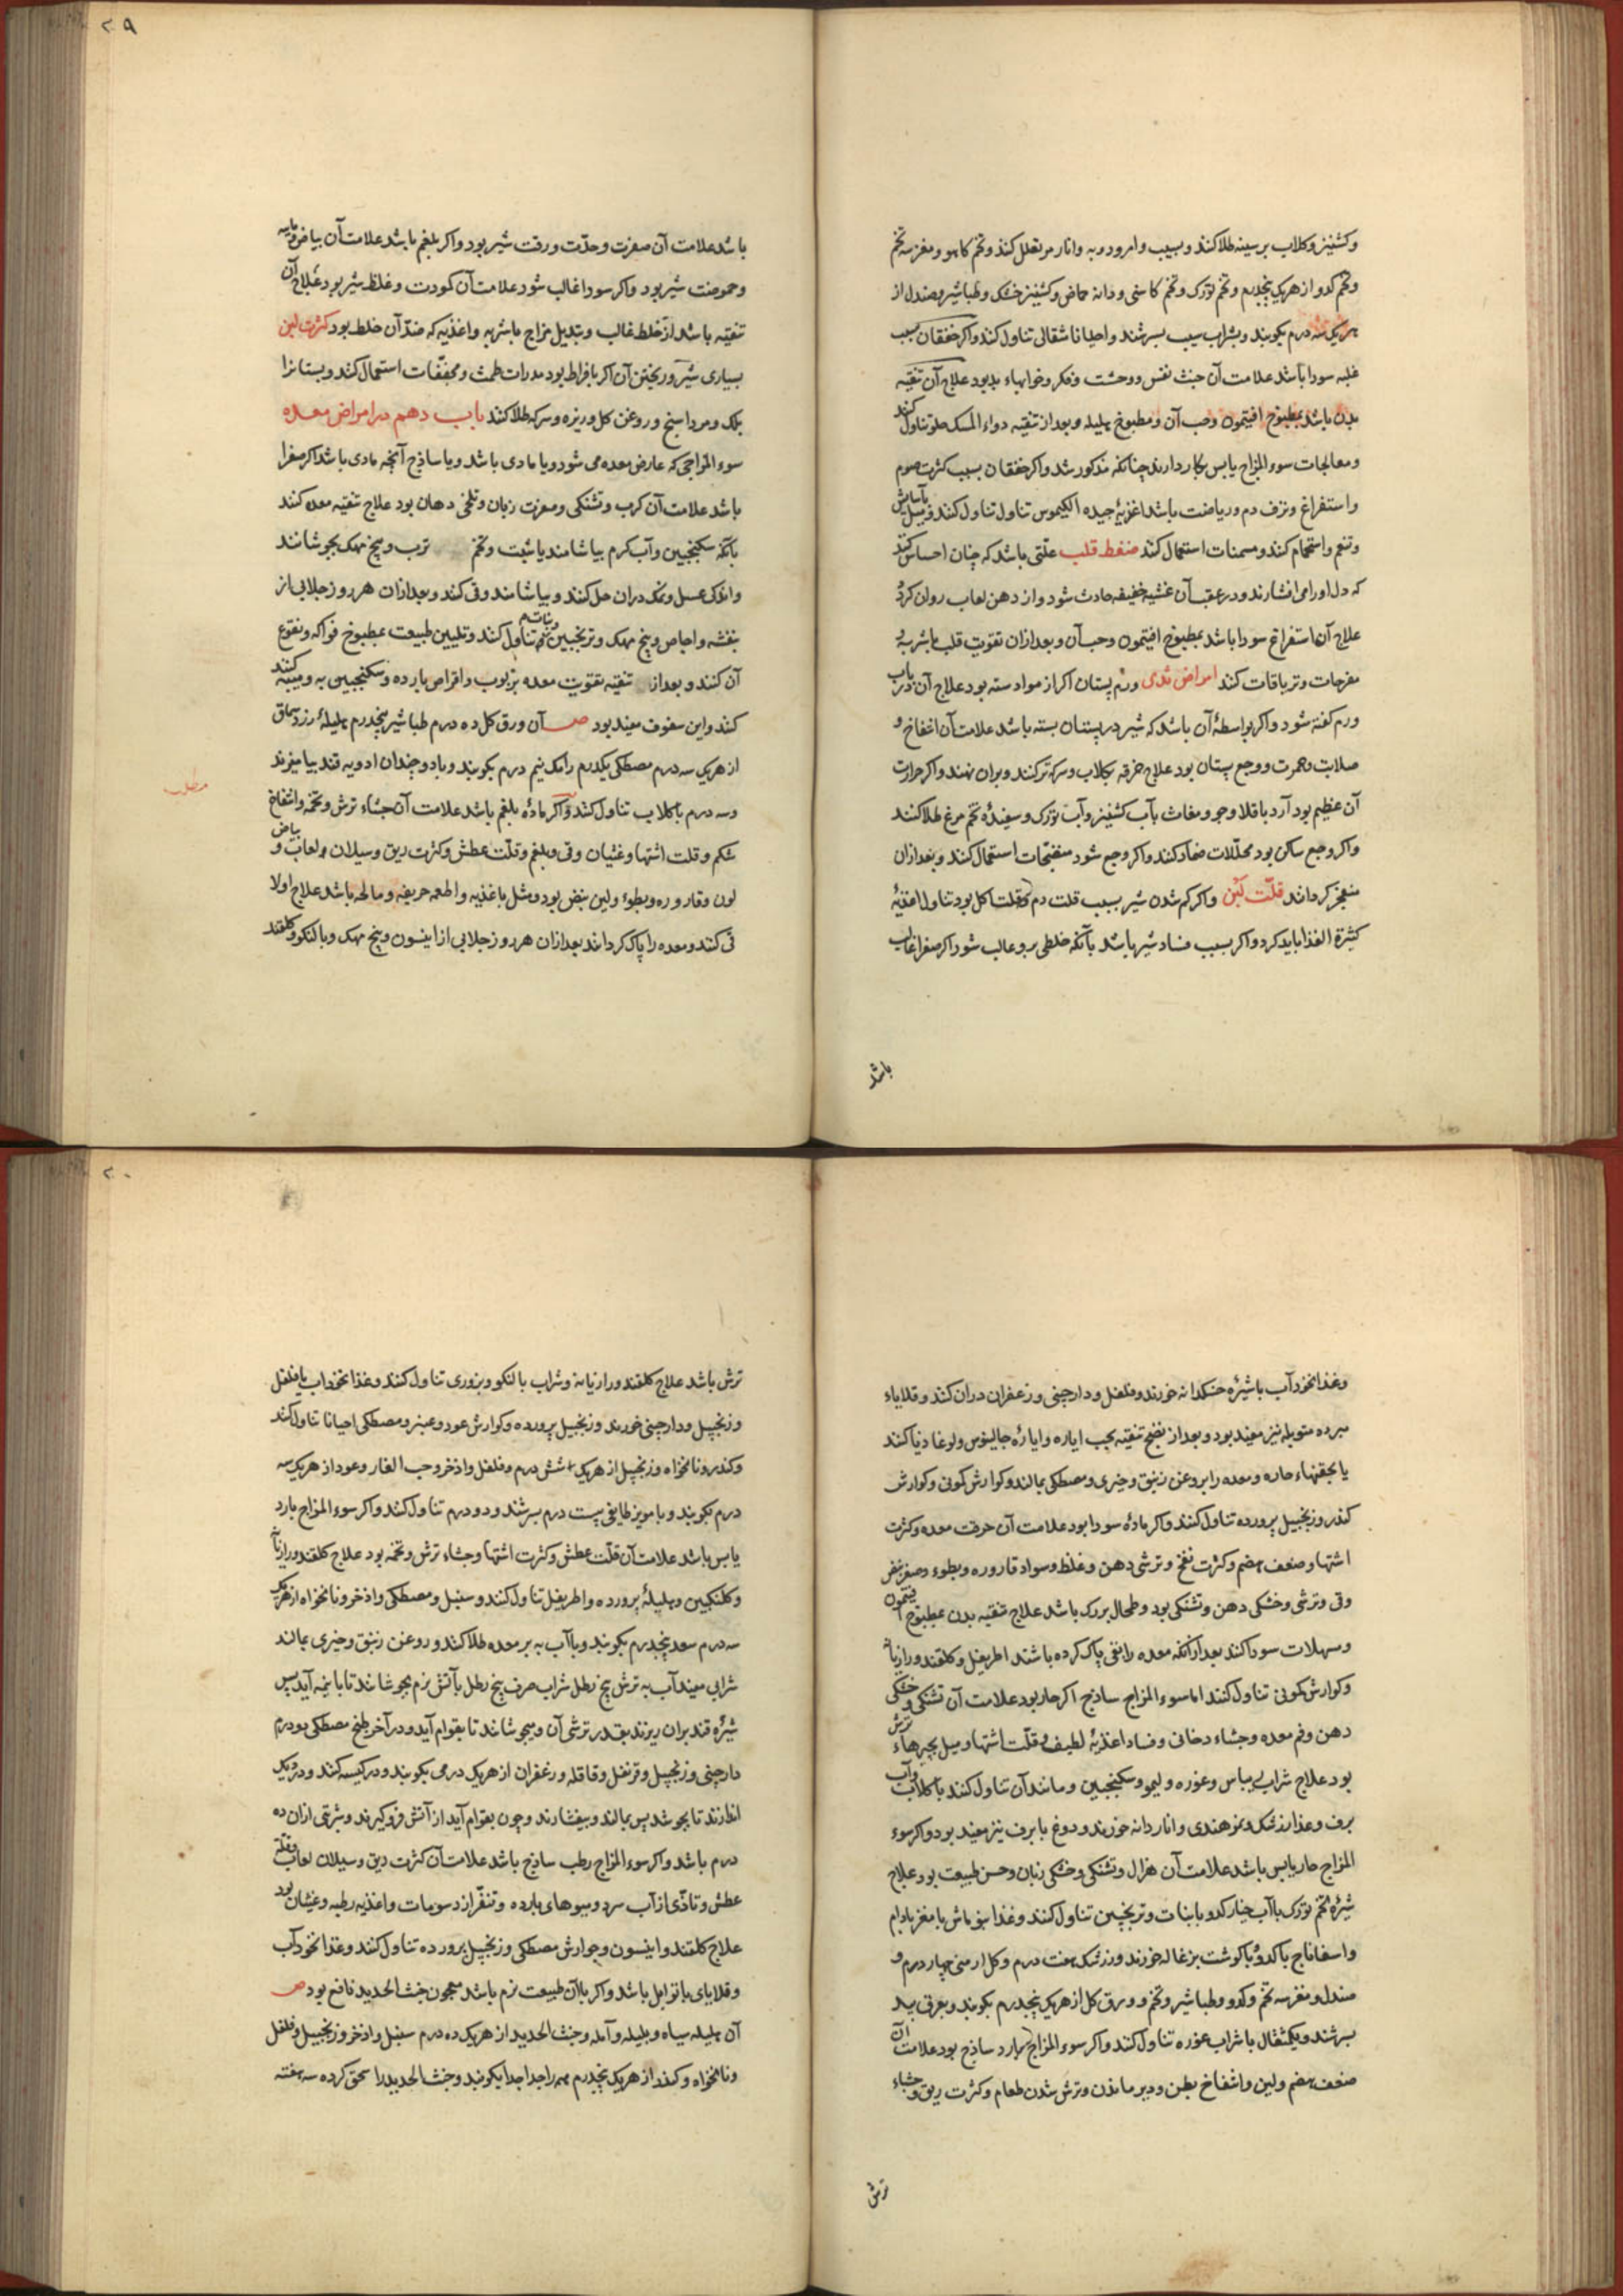 وکشنیز وکلاب بر سینه طلا کنند وبسیب وامرود وبه وانار مز تعلل کنند وتخم کاهو ومغز سه تخم
وتخم کدو از هریک پنجدرم وتخم تورک وتخم کاسنی ودانه حماض وکشنیز خشک وطباشیر وصندل از
هریکی سه درم بکوبند وبشراب سیب بسرشند واحیانا شقالی تناول کنند واکر خفقان بسبب
غلبه سودا باشد علامت آن خبث نفس ووحشت وفکر وخوابهاء بد بود علاج آن تنقیه
بدن باشد بمطبوخ افتیمون وحب آن ومطبوخ هلیله وبعد از تنقیه دواء المسک حلو تناول کنند
ومعالجات سوء المزاج یابس بکار دارند چنانکه مذکور شد واکر خفقان بسبب کثرت صوم
واستفراغ ونزف دم وریاضت باشد اغذیهٔ جیده الکیموس تناول تناول کنند ومیل بآسایش
وتنعم واستحمام کنند ومسمنات استعمال کنند ضغط قلب علتی باشد که چنان احساس کند
که دل اورا می افشارند ودر عقب آن غشیه خفیفه حادث شود واز دهن لعاب روان کردد
علاج آن استفراغ سودا باشد بمطبوخ افتیمون وحب آن وبعد ازان تقویت قلب باشربه و
مفرحات وتریاقات کنند امراض ثدی ورم پستان اکر از مواد سته بود علاج آن در باب
ورم کفته شود واکر بواسطهٔ آن باشد که شیر در پستان بسته باشد علامت آن انتفاخ و
صلابت وحمرت ووجع پستان بود علاج خرقه بکلاب وسرکه تر کنند وبران نهند واکر حرارت
آن عظیم بود آرد باقلا وجو ومغاث بآب کشنیز وآب تورک وسفیدهٔ تخم مرغ طلا کنند
واکر وجع ساکن بود محللات ضماد کنند واکر وجع شود منضجات استعمال کنند وبعد ازان
منفجر کردانند قلّت لَبَن واکر کم شدن شیر بسبب قلت دم وقلت اکل بود تناول اغذیهٔ
کثیرة الغذا باید کرد واکر بسبب فساد شیر باشد بآنکه خلطی برو غالب شود اکر صفرا غالب
باشد
۲۹
باشد علامت آن صفرت وحدّت ورقت شیر بود واکر بلغم باشد علامت آن بیاض ومایه
وحموضت شیر بود واکر سودا غالب شود علامت آن کمودت وغلظ شیر بود علاج آن
تنقیه باشد از خلط غالب وتبدیل مزاج باشربه واغذیه که ضدّ آن خلط بود کثرت لبن
بسیاری شیر وریختن آن اکر بافراط بود مدرات طمث ومجففات استعمال کنند وبستانرا
بنمک ومرداسنج وروغن کل وزیره وسرکه طلا کنند باب دهم در امراض معده
سوء المزاجی که عارض معده می شود ویا مادی باشد ویا ساذج آنچه مادی باشد اکر صفرا
باشد علامت آن کرب وتشنکی وصفرت زبان وتلخی دهان بود علاج تنقیه معده کنند
بآنکه سکنجبین وآب کرم بیاشامند یا شبت وتخم ترب وبیخ مهک بجوشانند
واندکی عسل ونمک دران حل کنند وبیاشامند وقی کنند وبعد ازان هر روز جلابی از
بنفشه واجاص وبیخ مهک وترنجبین ونبات تناول کنند وتلیین طبیعت بمطبوخ فواکه ونقوع
آن کنند وبعد از تنقیه تقویت معده بربوب واقراص بارده وسکنجبین به ومیبه کنند
کنند واین سفوف مفید بود ص آن ورق کل ده درم طباشیر پنجدرم هلیلهٔ زرد سماق
از هریک سه درم مصطکی یکدرم رامک نیم درم بکوبند وبا دو چندان ادویه قند بیامیزند
مطلب
وسه درم باکلاب تناول کنند واکر مادهٔ بلغم باشد علامت آن جشاء ترش وتخمه وانتفاخ
شکم وقلت اشتها وغثیان وقی وبلغم وقلّت عطش وکثرت ریق وسیلان ولعاب وبیاض
لون وقاروره وبطوء ولین نبض بود ومثل باغذیه واطعمه حریفه ومالحه باشد علاج اولا
قی کنند ومعده را پاک کردانند بعد ازان هر روز جلابی از انیسون وبیخ مهک وبالنکو وکلقند
وغذا نخودآب باشیرهٔ خسکدانه خورند وفلفل ودارچینی وزعفران دران کنند وقلایاء
مبرده متوبله نیز مفید بود وبعد از نضج تنقیه بحب ایاره وایارهٔ جالینوس ولوغاذیا کنند
یا بحقنهاء حاره ومعده را بروغن زنبق وخیری ومصطکی بمالند وکوارش کمونی وکوارش
کندر وزنجبیل پرورده تناول کنند واکر مادهٔ سودا بود علامت آن حرقت معده وکثرت
اشتها وضعف هضم وکثرت نفخ وترشی دهن وغلظ وسواد قاروره وبطوء وصغر نبض
وقی وترشی وخشکی دهن وتشنکی بود وطحال بزرک باشد علاج تنقیه بدن بمطبوخ افتیمون
ومسهلات سودا کنند بعد ازآنکه معده را بقی پاک کرده باشند اطریفل وکلقند ورازیانه
وکوارش کمونی تناول کنند اما سوء المزاج ساذج اکر حار بود علامت آن تشنکی وخشکی
دهن وفم معده وجشاء دخانی وفساد اغذیهٔ لطیف وقلّت اشتها ومیل بچیزهاء ترش
بود علاج شراب ریباس وغوره ولیمو وسکنجبین ومانند آن تناول کنند باکلاب وآب
برف وغذا زرشک وتمر هندی واناردانه خورند ودوغ با برف نیز مفید بود واکر سوء
المزاج حار یابس باشد علامت آن هزال وتشنکی وخشکی زبان وحسن طبیعت بود علاج
شیرهٔ تخم تورک باآب خیار کدو بانبات وترنجبین تناول کنند وغذا بنوماش بامغز بادام
واسفاناج باکدو باکوشت بزغاله خورند وزرشک هفت درم وکل ارمنی چهار درم و
صندل ومغز سه تخم وکدو وطباشیر وتخم وورق کل از هریک پنجدرم بکوبند وبعرق بید
بسرشند ویکمثقال باشراب غوره تناول کنند واکر سوء المزاج بارد ساذج بود علامت آن
ضعف هضم ولین وانتفاخ بطن ودیر ماندن وترش شدن طعام وکثرت ریق وجشاء
ترش
۳۰
ترش باشد علاج کلقند ورازیانه وشراب بالنکو وبزوری تناول کنند وغذا نخوداب بافلفل
وزنجبیل ودارچینی خورند وزنجبیل پرورده وکوارش عود وعنبر ومصطکی احیانا تناول کنند
وکندر ونانخواه وزنجبیل از هریک شش درم وفلفل واذخر وحب الغار وعود از هریک سه
درم بکوبند وبامویز طایفی بیست درم بسرشند ودو درم تناول کنند واکر سوء المزاج بارد
یابس باشد علامت آن قلّت عطش وکثرت اشتها وجشاء ترش وتخمه بود علاج کلقند ورازیانه
وکلنکبین وهلیلهٔ پرورده واطریفل تناول کنند وسنبل ومصطکی واذخر ونانخواه از هریک
سه درم سعد پنجدرم بکوبند وباآب به بر معده طلا کنند وروغن زنبق وخیری بمالند
شرابی مفید آب به ترش پنج رطل شراب صرف پنج رطل بآتش نرم بجوشانند تا بانیمه آید پس
شیرهٔ قند بران ریزند بقدر ترشی آن ومیجوشانند تا بقوام آید ودر آخر طبخ مصطکی دو درم
دارچینی وزنجبیل وقرنفل وقاقله وزعفران از هریک درمی بکوبند ودر کیسه کنند ودر دیک
اندازند تا بجوشد پس بمالند وبیفشارند وچون بقوام آید از آتش فرو کیرند وشربتی ازان ده
درم باشد واکر سوء المزاج رطب ساذج باشد علامت آن کثرت ریق وسیلان لعاب وقلّة
عطش وتاذّی از آب سرد ومیوهای بارده وتنفّر از دسومات واغذیه رطبه وغثیان بود
علاج کلقند وانیسون وجوارش مصطکی وزنجبیل پرورده تناول کنند وغذا نخودآب
وقلایای باتوابل باشد واکر باآن طبیعت نرم باشد معجون خبث الحدید نافع بود ص
آن هلیله سیاه وبلیله وآمله وخبث الحدید از هریک ده درم سنبل واذخر وزنجبیل وفلفل
ونانخواه وکندر از هریک پنجدرم همه را جدا جدا بکوبند وخبث الحدید را سحق کرده سه هفته